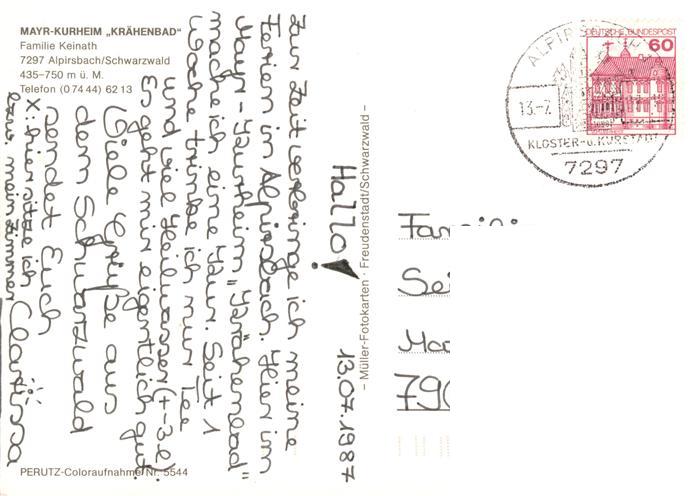 MAYR-KURHEIM „KRÄHENBAD"
Familie Keinath
7297 Alpirsbach/Schwarzwald
435–750 m ü. M.
Telefon (0 74 44) 62 13
13.07.1987
Hallo!
Zur Zeit verbringe ich meine
Ferien in Alpirsbach. Hier im
Mayr-Kurheim "Krähenbad"
mache ich eine Kur. Seit 1
Woche trinke ich nur Tee
und viel Heilwasser (+-3l)
Es geht mir eigentlich gut.
Viele Grüße aus
dem Schwarzwald
sendet Euch
Martina
X: hier sitze ich
bzw. mein Zimmer
PERUTZ-Coloraufnahme Nr. 5544
– Müller-Fotokarten · Freudenstadt/Schwarzwald –
DEUTSCHE BUNDESPOST
60
13.-7.
KLOSTER-u.KURSTADT
7297